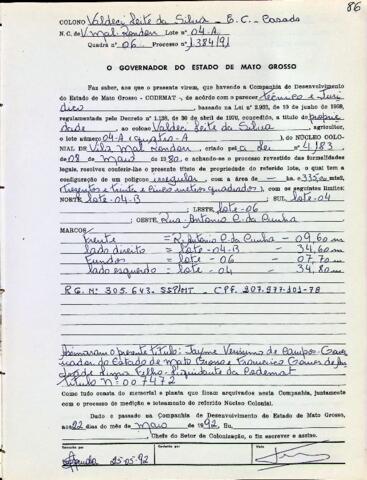 86
COLONO Valdeci Leite da Silva - E.C. Casado
N.C. de V. Mal. Rondon Lote nº 04-A
Quadra nº 06 Processo nº 1384/91
O GOVERNADOR DO ESTADO DE MATO GROSSO
Faz saber, aos que o presente virem, que havendo a Companhia de Desenvolvimento
do Estado de Mato Grosso - CODEMAT -, de acôrdo com o parecer técnico e Jurí
dico basada na Lei nº 2.933, de 10 de junho de 1969,
regulamentada pelo Decreto nº 1.138, de 30 de abril de 1970, concedido, a título de proprie
dade, ao colono Valdeci Leite da Silva, agricultor,
o lote número 04-A (quatro-A), do NÚCLEO COLO-
NIAL, de Vila Mal. Rondon, criado pela Lei nº 4.183,
de 08 de maio de 1980, e achando-se o processo revestido das formalidades
legais, resolveu conferir-lhe o presente título de propriedade do referido lote, o qual tem a
configuração de um polígono irregular, com a área de — ha 335,00 mts2,
(trezentos e trinta e cinco metros quadrados), com os seguintes limites:
NORTE lote-04-B SUL, lote-04
LESTE, lote-06
OESTE, Rua-Antonio C. da Cunha
MARCOS
frente = R. Antonio C. da Cunha - 09,60 ms
lado direito = lote-04-B - 34,60 m
Fundos = lote-06 - 07,70 m
lado esquerdo = lote-04 - 34,80 m
R.G. Nº 305.643. SSP/MT - CPF. 207.977.101-78
Assinaram o presente título: Jayme Verissimo de Campos - Gover
nador do Estado de Mato Grosso e Francisco Gomes de
Lima Filho - Liquidante da Codemat
título Nº 007472
Como tudo consta do memorial e planta que ficam arquivados nesta Companhia, juntamente
com o processo de medição e loteamento do referido Núcleo Colonial.
Dado e passado na Companhia de Desenvolvimento do Estado de Mato Grosso,
aos 22 dias do mês de maio de 1992, Eu,
Chefe do Setor de Colonização, o fiz escrever e assino.
Escrito por
Conferido por
Visto
25-05-92